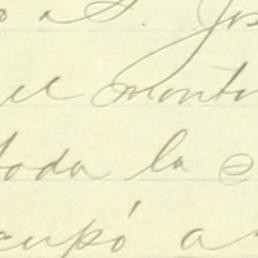 a S. Jos
el monto
toda la
cupó a